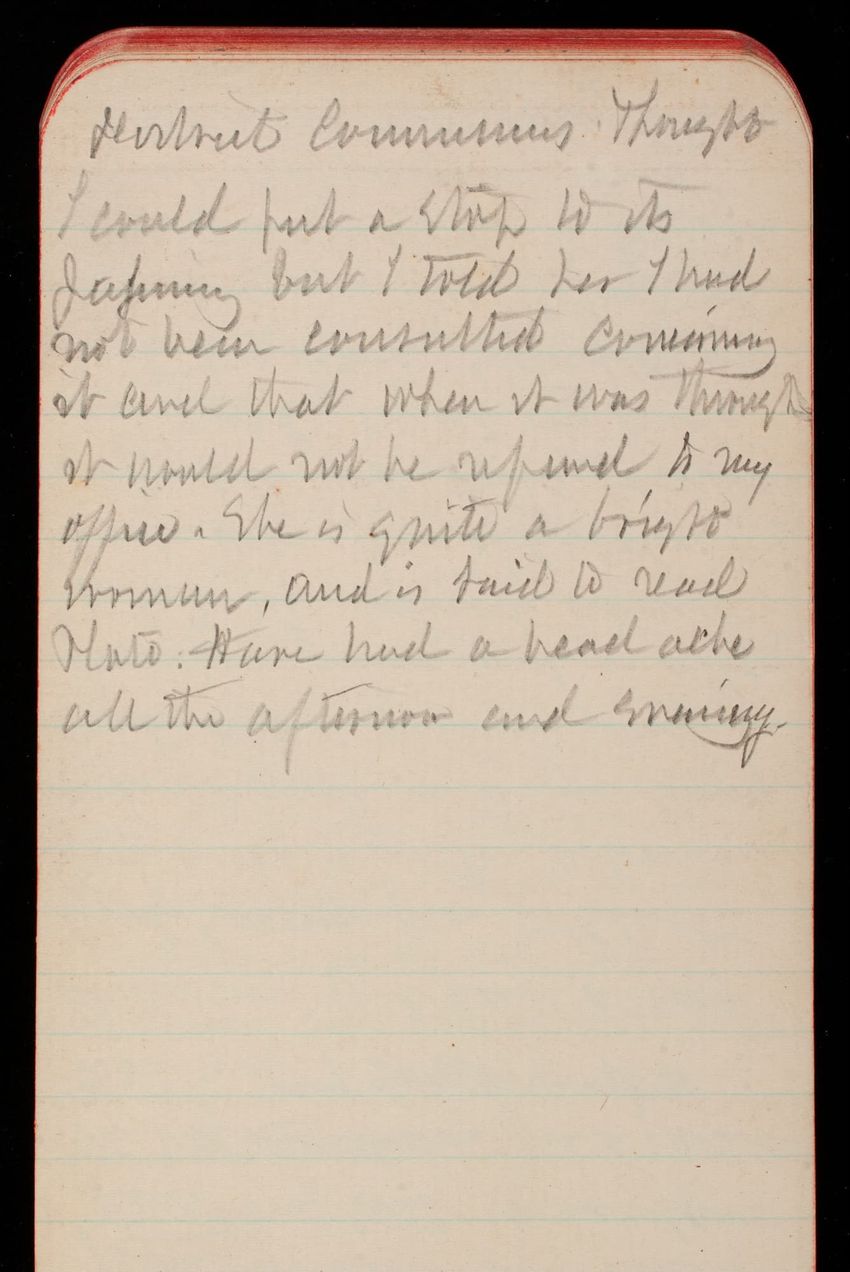 District Commrs. Thought
I could put a stop to its
but I told her I had
not been consulted concerning
it and that when it was through
it would not be referred to my
office. She is quite a bright
woman, and is said to read
Plato. Have had a head ache
all the afternoon and evening.